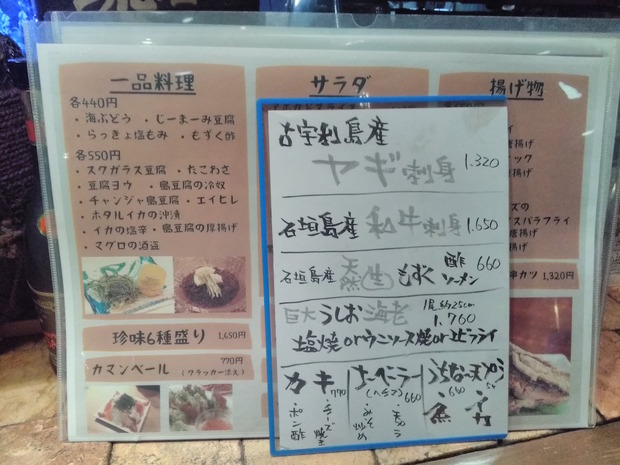 一品料理
各440円
・海ぶどう ・じーまーみ豆腐
・らっきょ塩もみ ・もずく酢
各550円
・スクガラス豆腐 ・たこわさ
・豆腐ヨウ ・島豆腐の冷奴
・チャンジャ島豆腐 ・エイヒレ
・ホタルイカの沖漬
・イカの塩辛 ・島豆腐の厚揚げ
・マグロの酒盗
珍味6種盛り 1,650円
カマンベール 770円
(クラッカー添え)
サラダ
揚げ物
唐揚げ
ズの
スパラフライ
唐揚げ
串カツ 1,320円
古宇利島産
ヤギ刺身 1.320
石垣島産 和牛刺身 1.650
石垣島産 天然(生)もずく 酢 ソーメン 660
巨大うしお海老 1尾約25cm 1.760
塩焼 orウニソース焼orエビフライ
カキ 770
・チーズ焼
・ポン酢
ナーベーラー
(ヘチマ) 660
・天ぷら
・みそ炒め
うちなー天ぷら
魚 660
イカ